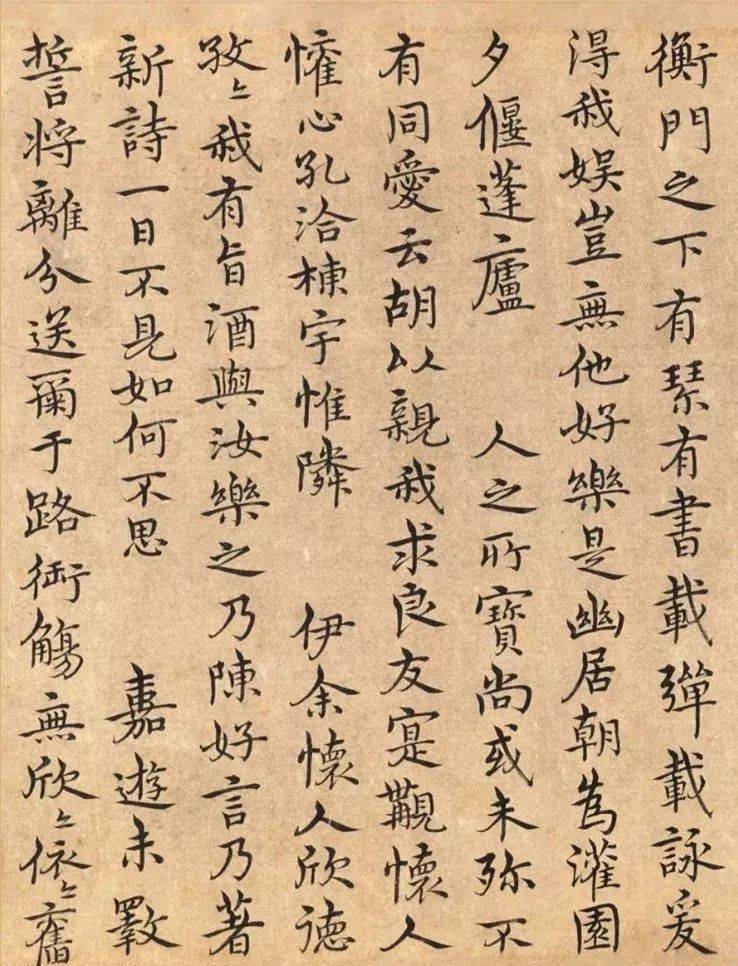 衡門之下有琴有書載彈載詠爰
得我娛豈無他好樂是幽居朝為灌園
夕偃蓬廬 人之所寶尚或未珎不
有同愛云胡以親我求良友寔覯懷人
懽心孔洽棟宇惟隣 伊余懷人欣德
孜〻我有旨酒與汝樂之乃陳好言乃著
新詩一日不見如何不思 嘉遊未斁
誓將離分送爾于路銜觴無欣〻依〻舊